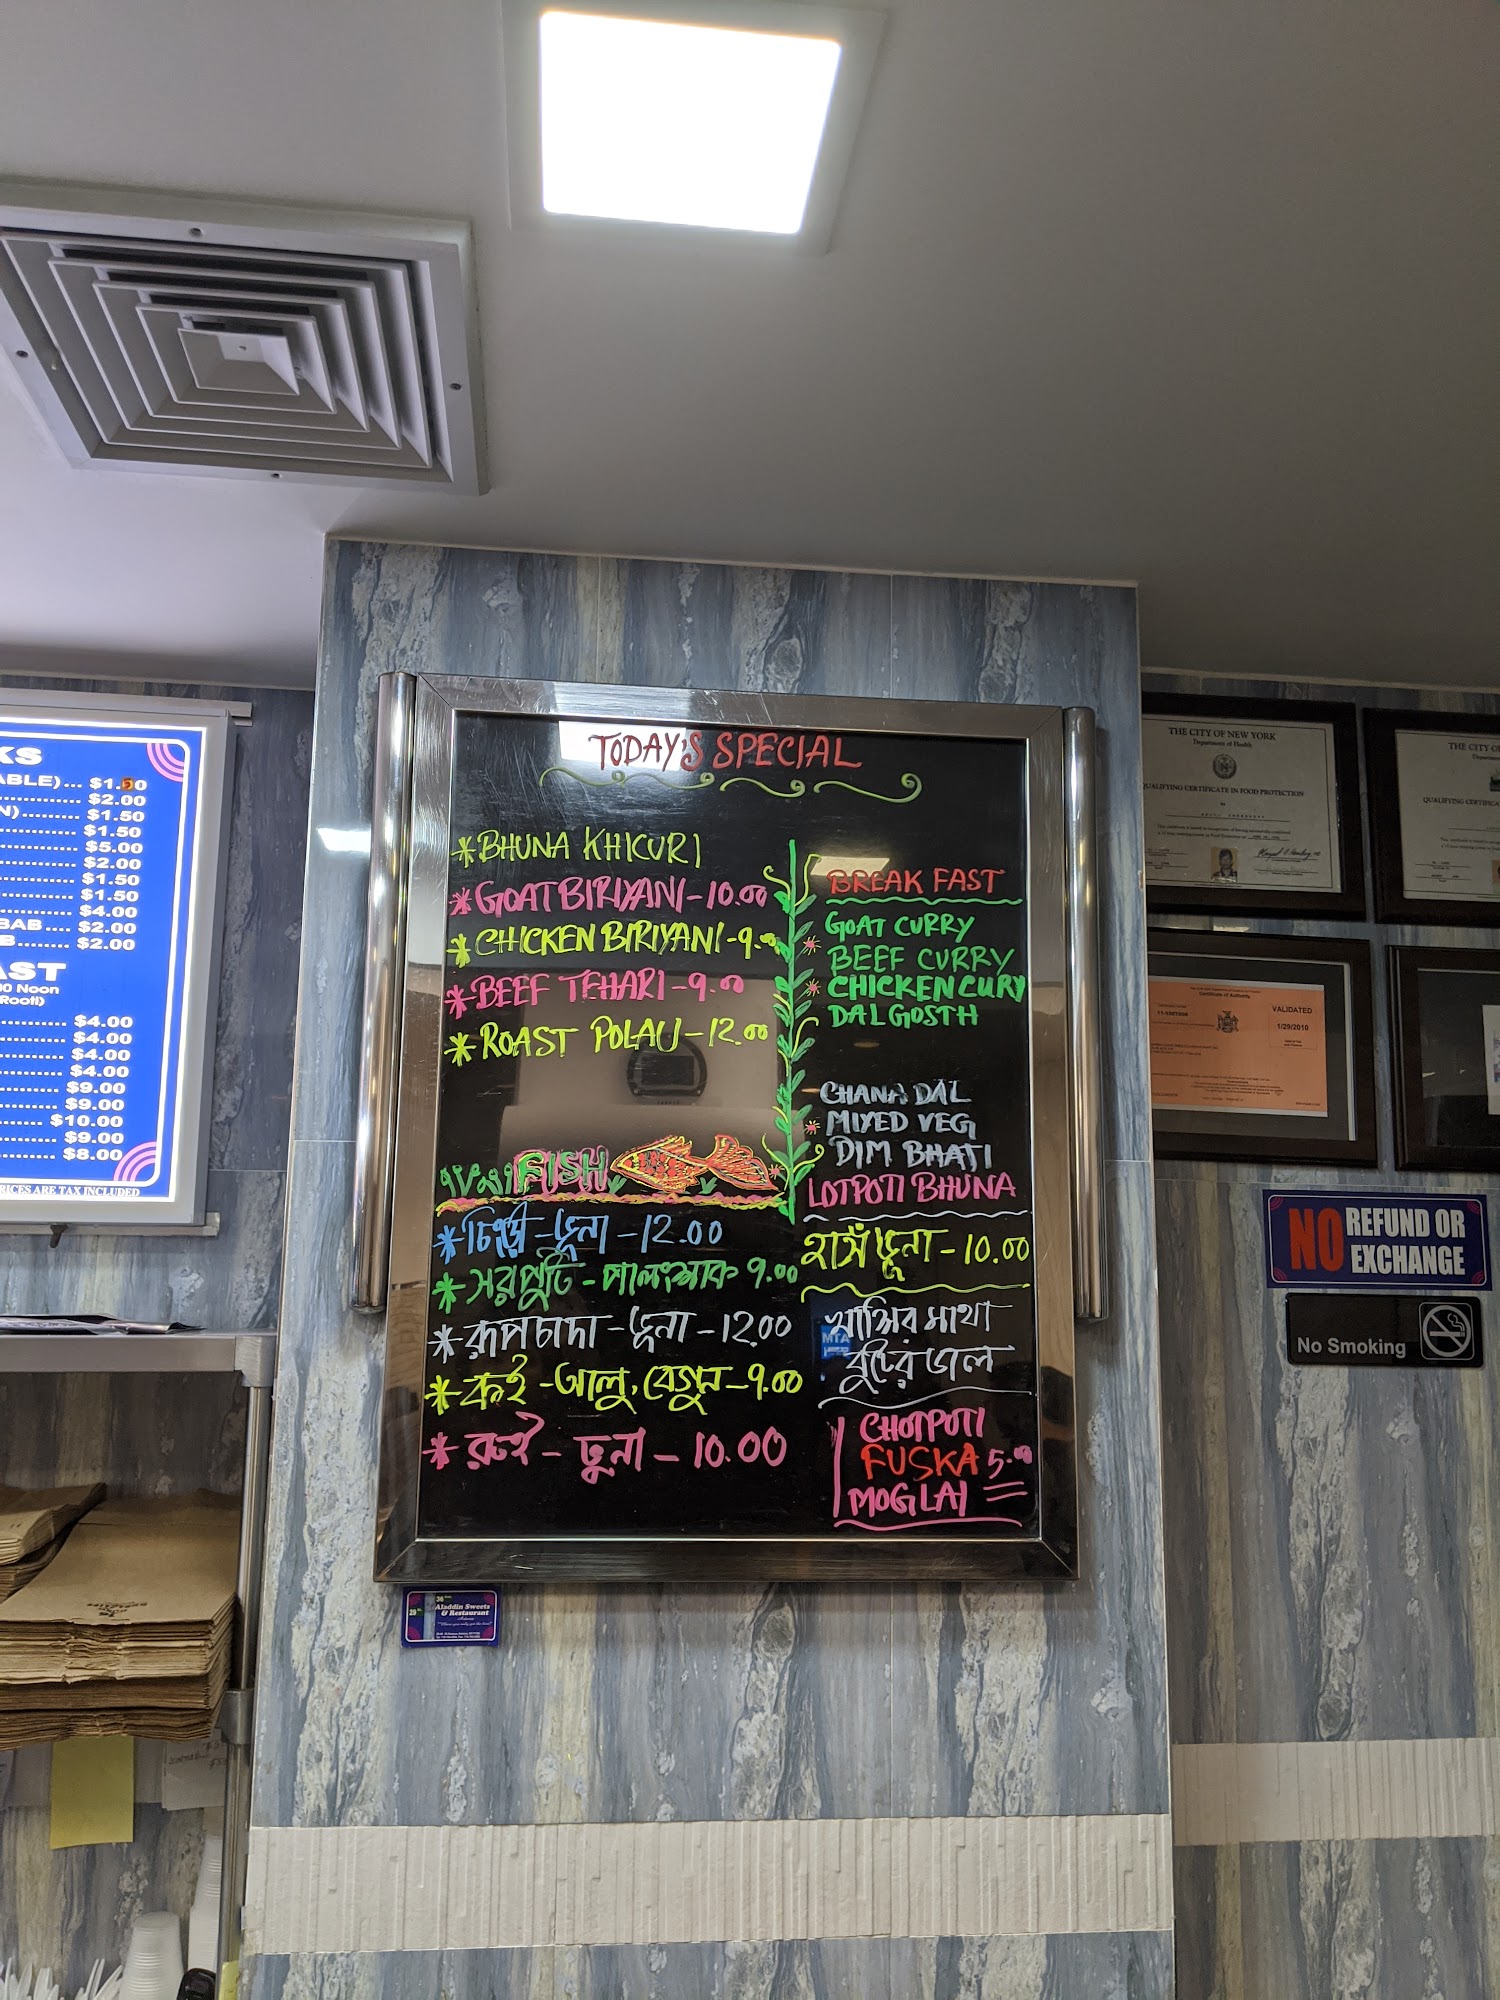 KS
ABLE)... $1.50
$2.00
N).......... $1.50
$1.50
$5.00
$2.00
$1.50
$1.50
$4.00
BAB.... $2.00
B........ $2.00
AST
Noon
Rooti)
$4.00
$4.00
$4.00
$4.00
$9.00
$9.00
$10.00
$9.00
$8.00
RICES ARE TAX INCLUDED
TODAY'S SPECIAL
* BHUNA KHICURI
* GOAT BIRIYANI - 10.00
* CHICKEN BIRIYANI - 9.00
* BEEF TEHARI - 9.00
* ROAST POLAU - 12.00
FISH
* চিংড়ী - ভূনা - 12.00
* সরপুটি - পালংশাক 9.00
* রূপচাদা - ভূনা - 12.00
* কই - আলু, বেগুন - 9.00
* রুই - ভুনা - 10.00
BREAK FAST
GOAT CURRY
BEEF CURRY
CHICKEN CURY
DAL GOSTH
CHANA DAL
MIXED VEG
DIM BHATI
LOTPOTI BHUNA
হাসঁ ভূনা - 10.00
খাসির মাথা
বুটের ডাল
CHOTPOTI
FUSKA 5.00
MOGLAI
MTA
Aladdin Sweets
& Restaurant
THE CITY OF NEW YORK
Department of Health
QUALIFYING CERTIFICATE IN FOOD PROTECTION
THE CITY O
QUALIFYING CERTIFICA
Certificate of Authority
VALIDATED
1/29/2010
NO REFUND OR
EXCHANGE
No Smoking